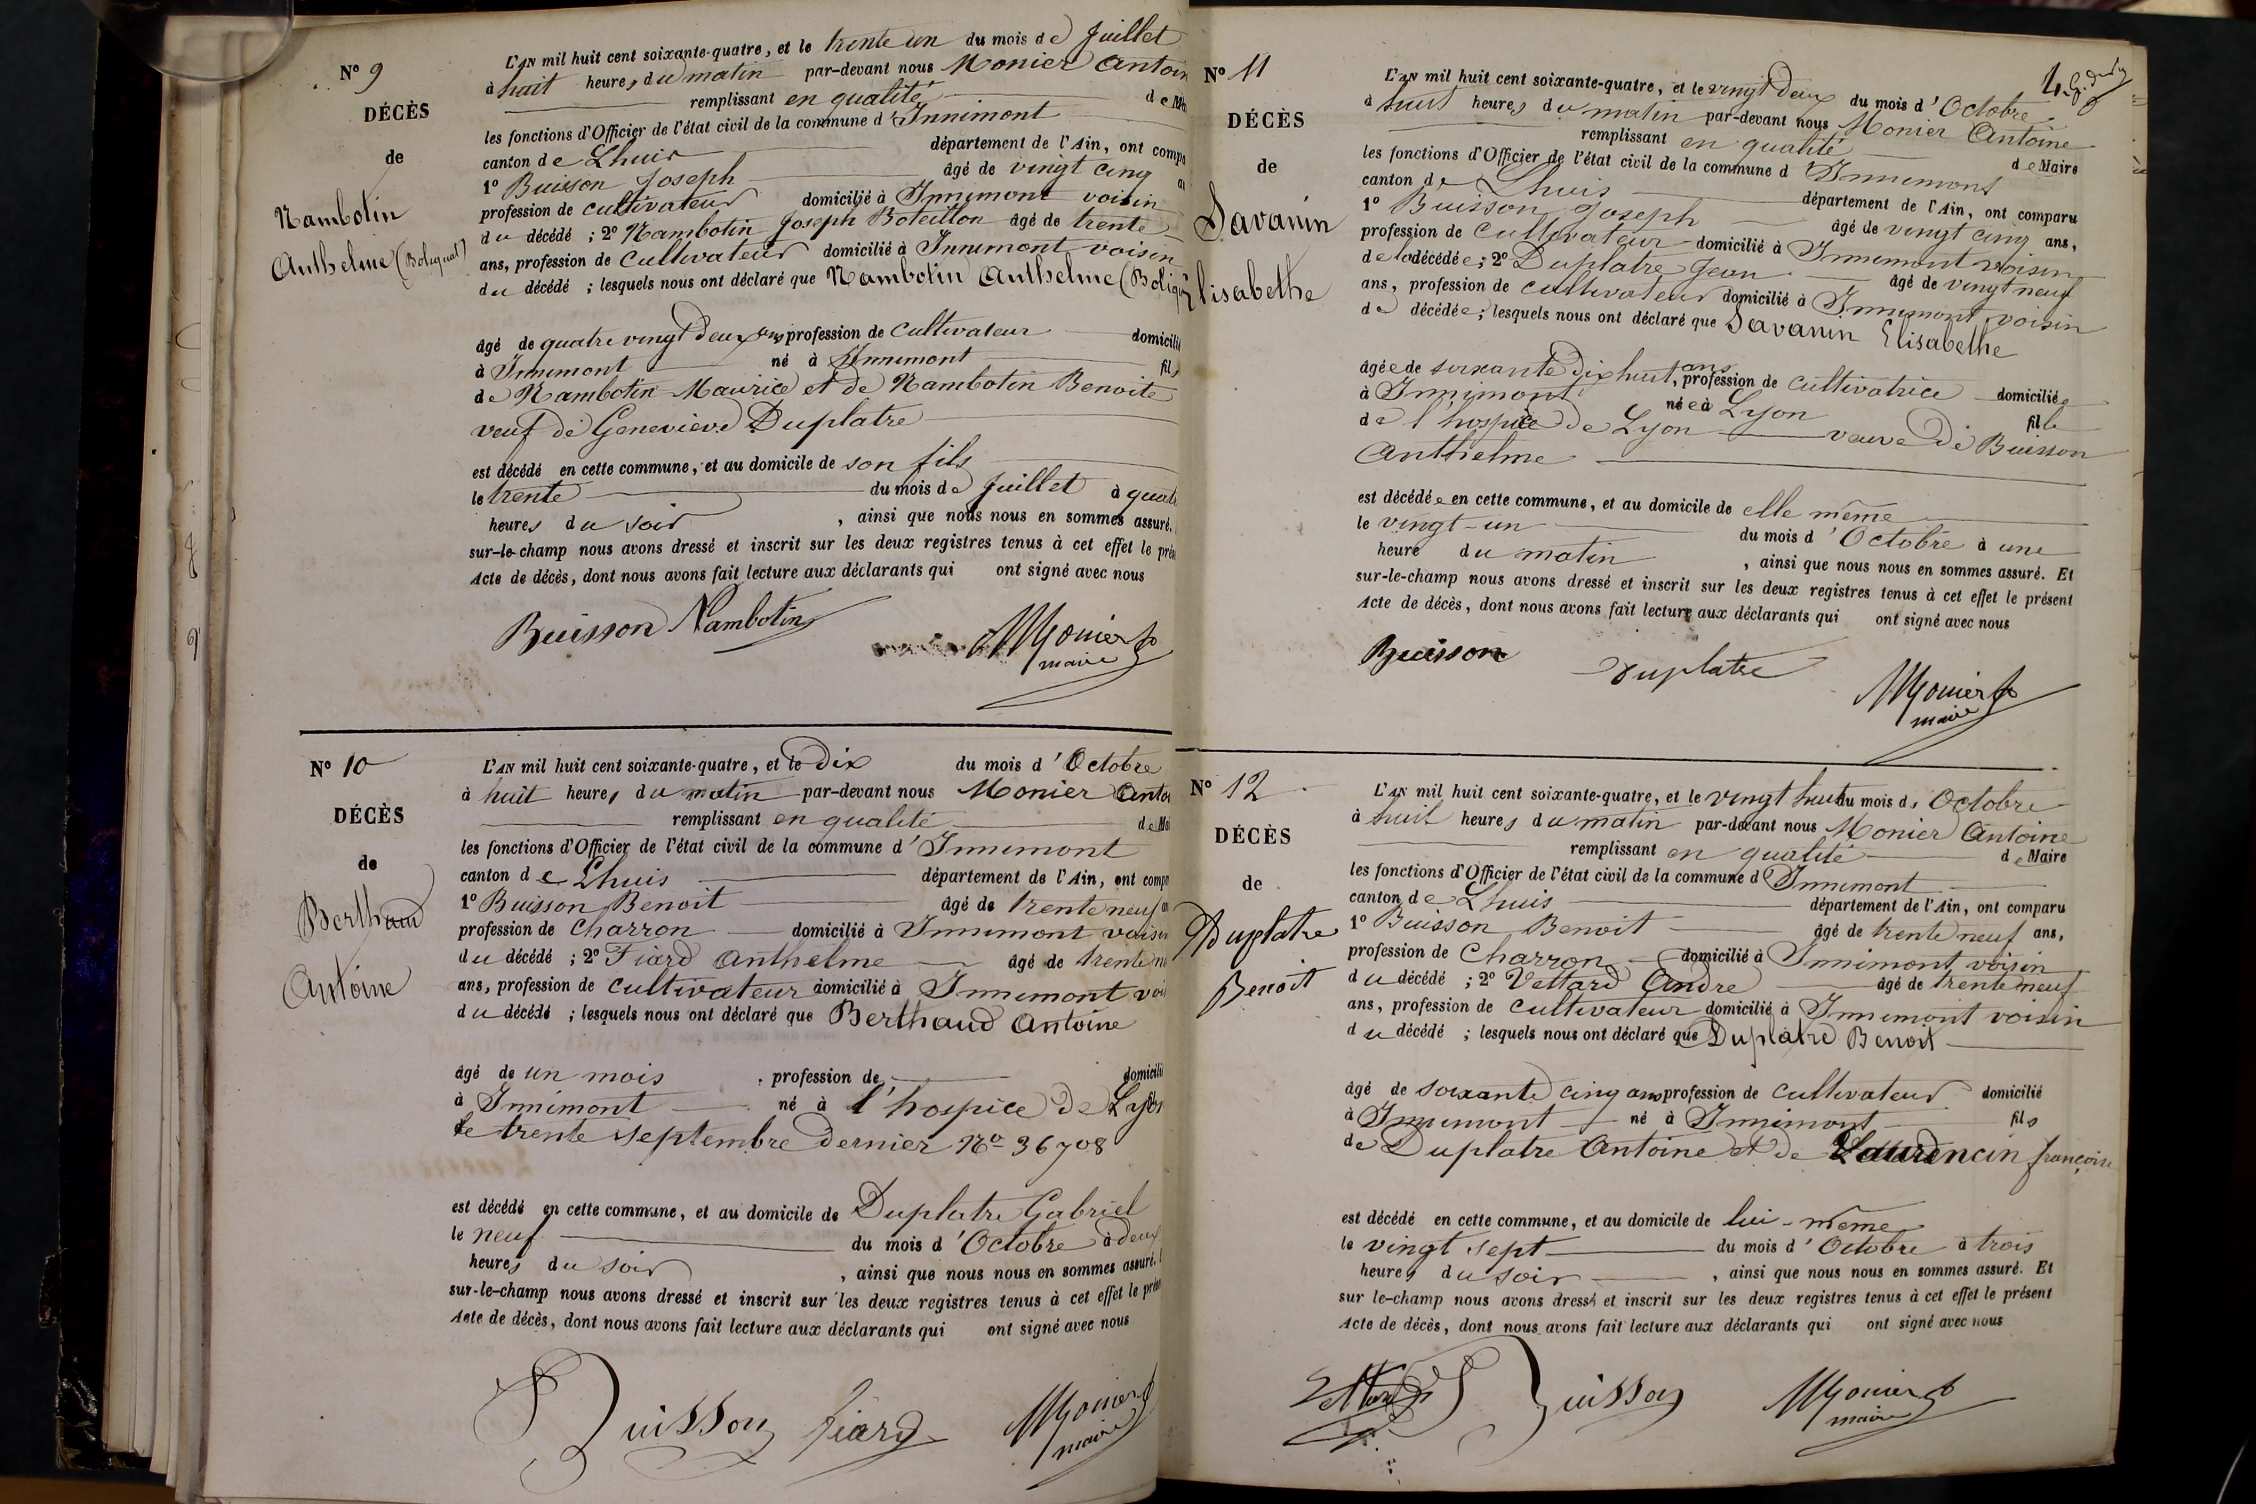 N° 9
DÉCÈS
de
Nambotin
Anthelme (Bolignat)
L'AN mil huit cent soixante-quatre, et le trente un du mois de Juillet
à huit heures du matin par-devant nous Monier Antoin
remplissant en qualité de Ma
les fonctions d'Officier de l'état civil de la commune d'Innimont
canton de Lhuis département de l'Ain, ont compa
1° Buisson Joseph âgé de vingt cinq a
profession de cultivateur domicilié à Innimont voisin
du décédé ; 2° Nambotin Joseph Boteillon âgé de trente
ans, profession de Cultivateur domicilié à Innimont voisin
du décédé ; lesquels nous ont déclaré que Nambotin Anthelme (Bolign
âgé de quatre vingt deux ans profession de cultivateur domicilié
à Innimont né à Innimont fils
de Nambotin Maurice et de Nambotin Benoite
veuf de Geneviève Duplatre
est décédé en cette commune, et au domicile de son fils
le trente du mois de Juillet à quatr
heures du soir , ainsi que nous nous en sommes assuré.
sur-le-champ nous avons dressé et inscrit sur les deux registres tenus à cet effet le prés
Acte de décès, dont nous avons fait lecture aux déclarants qui ont signé avec nous
Buisson Nambotin Monier
maire
N° 10
DÉCÈS
de
Berthaud
Antoine
L'AN mil huit cent soixante-quatre, et le Dix du mois d'Octobre
à huit heures du matin par-devant nous Monier Anto
remplissant en qualité de Mai
les fonctions d'Officier de l'état civil de la commune d'Innimont
canton de Lhuis département de l'Ain, ont comp
1° Buisson Benoit âgé de trente neuf an
profession de Charron domicilié à Innimont voisin
du décédé ; 2° Fiard Anthelme âgé de trente n
ans, profession de cultivateur domicilié à Innimont vois
du décédé ; lesquels nous ont déclaré que Berthaud Antoine
âgé de un mois , profession de domicilié
à Innimont né à l'hospice de Lyon
le trente septembre dernier N° 36708
est décédé en cette commune, et au domicile de Duplatre Gabriel
le neuf du mois d'Octobre à deux
heures du soir , ainsi que nous nous en sommes assuré.
sur-le-champ nous avons dressé et inscrit sur les deux registres tenus à cet effet le prése
Acte de décès, dont nous avons fait lecture aux déclarants qui ont signé avec nous
Buisson fiard Monier
maire
N° 11
DÉCÈS
de
Savanin
Elisabethe
L'AN mil huit cent soixante-quatre, et le vingt deux du mois d'Octobre
à huit heures du matin par-devant nous Monier Antoine
remplissant en qualité de Maire
les fonctions d'Officier de l'état civil de la commune d'Innimont
canton de Lhuis département de l'Ain, ont comparu
1° Buisson Joseph âgé de vingt cinq ans,
profession de Cultivateur domicilié à Innimont voisin
de la décédée ; 2° Duplatre Jean âgé de vingt neuf
ans, profession de cultivateur domicilié à Innimont voisin
de décédée ; lesquels nous ont déclaré que Savanin Elisabethe
âgée de soixante Dix huit ans, profession de cultivatrice domiciliée
à Innimont née à Lyon fille
de l'hospice de Lyon veuve de Buisson
Anthelme
est décédée en cette commune, et au domicile de elle même
le vingt-un du mois d'Octobre à une
heure du matin , ainsi que nous nous en sommes assuré. Et
sur-le-champ nous avons dressé et inscrit sur les deux registres tenus à cet effet le présent
Acte de décès, dont nous avons fait lecture aux déclarants qui ont signé avec nous
Buisson Duplatre Monier
maire
N° 12
DÉCÈS
de
Duplatre
Benoit
L'AN mil huit cent soixante-quatre, et le vingt huit du mois d, Octobre
à huit heures du matin par-devant nous Monier Antoine
remplissant en qualité de Maire
les fonctions d'Officier de l'état civil de la commune d'Innimont
canton de Lhuis département de l'Ain, ont comparu
1° Buisson Benoit âgé de trente neuf ans,
profession de Charron domicilié à Innimont voisin
du décédé ; 2° Vettard André âgé de trente neuf
ans, profession de cultivateur domicilié à Innimont voisin
du décédé ; lesquels nous ont déclaré que Duplatre Benoit
âgé de soixante cinq ans profession de cultivateur domicilié
à Innimont né à Innimont fils
de Duplatre Antoine et de Laurencin françoise
est décédé en cette commune, et au domicile de lui-même
le vingt sept du mois d'Octobre à trois
heures du soir , ainsi que nous nous en sommes assuré. Et
sur le-champ nous avons dressé et inscrit sur les deux registres tenus à cet effet le présent
Acte de décès, dont nous avons fait lecture aux déclarants qui ont signé avec nous
Vettard Buisson Monier
maire